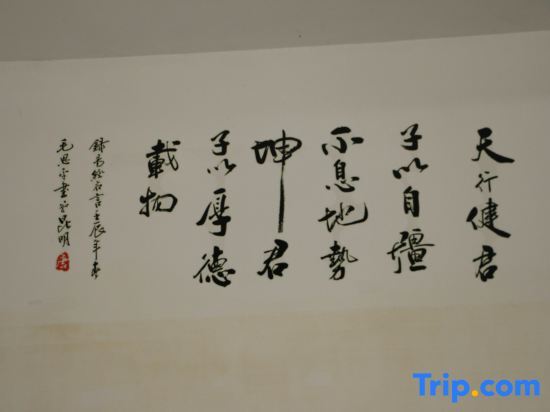 天行健君
子以自彊
不息地勢
坤君
子以厚德
載物
錄易經名言壬辰年春
毛思
書於昆明
Trip.com